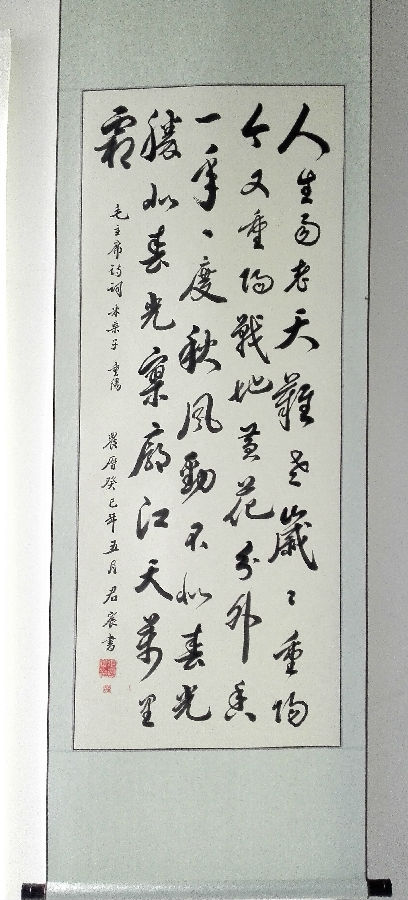 人生易老天難老歲々重陽
今又重陽戰地黃花分外香
一年一度秋風勁不似春光
勝似春光寥廓江天萬里
霜
毛主席詩詞采桑子重陽 農曆癸巳年五月君宸書